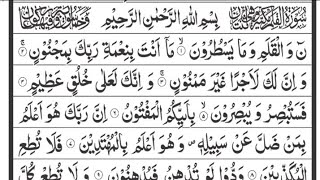 سُوْرَةُ الْقَلَمِ مَكِّيَّةٌ
بِسْمِ اللّٰهِ الرَّحْمٰنِ الرَّحِيْمِ
نٓ وَ الْقَلَمِ وَ مَا يَسْطُرُوْنَ ۙ۱ مَآ اَنْتَ بِنِعْمَةِ رَبِّكَ بِمَجْنُوْنٍ ۚ۲
وَ اِنَّ لَكَ لَاَجْرًا غَيْرَ مَمْنُوْنٍ ۚ۳ وَ اِنَّكَ لَعَلٰى خُلُقٍ عَظِيْمٍ ۴
فَسَتُبْصِرُ وَ يُبْصِرُوْنَ ۙ۵ بِاَىيِّكُمُ الْمَفْتُوْنُ ۶ اِنَّ رَبَّكَ هُوَ اَعْلَمُ
بِمَنْ ضَلَّ عَنْ سَبِيْلِهٖ ۪ وَ هُوَ اَعْلَمُ بِالْمُهْتَدِيْنَ ۷ فَلَا تُطِعِ
الْمُكَذِّبِيْنَ ۸ وَدُّوْا لَوْ تُدْهِنُ فَيُدْهِنُوْنَ ۹ وَ لَا تُطِعْ كُلَّ